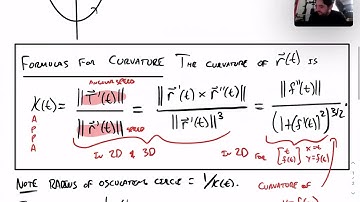 FORMULAS FOR CURVATURE THE CURVATURE OF r⃗(t) IS
ANGULAR SPEED
K(t) = ||T⃗'(t)|| / ||r⃗'(t)|| = ||r⃗'(t) × r⃗''(t)|| / ||r⃗'(t)||³ = ||f''(t)|| / (1+(f'(t))²)^{3/2}.
SPEED
K
A
P
P
A
IN 2D & 3D
IN 2D FOR [t f(t)] x=t y=f(t)
NOTE RADIUS OF OSCULATING CIRCLE = 1/K(t).
CURVATURE OF